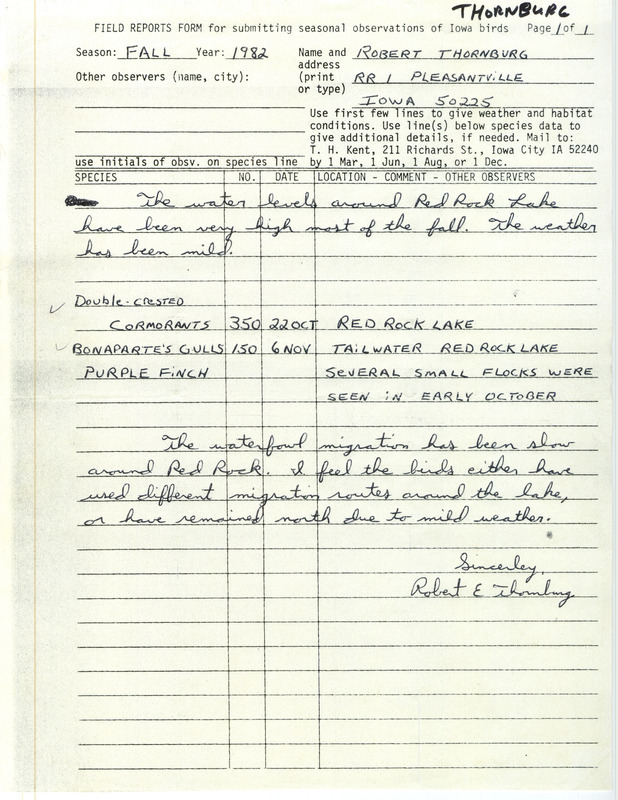 THORNBURG
FIELD REPORTS FORM for submitting seasonal observations of Iowa birds Page 1 of 1
Season: FALL Year: 1982 Name and ROBERT THORNBURG
address
Other observers (name, city): (print RR 1 PLEASANTVILLE
or type)
IOWA 50225
Use first few lines to give weather and habitat
conditions. Use line(s) below species data to
give additional details, if needed. Mail to:
T. H. Kent, 211 Richards St., Iowa City IA 52240
use initials of obsv. on species line by 1 Mar, 1 Jun, 1 Aug, or 1 Dec.
SPECIES NO. DATE LOCATION - COMMENT - OTHER OBSERVERS
The water levels around Red Rock Lake
have been very high most of the fall. The weather
has been mild.
Double-CRESTED
CORMORANTS 350 22 OCT RED ROCK LAKE
BONAPARTE'S GULLS 150 6 NOV TAILWATER RED ROCK LAKE
PURPLE FINCH SEVERAL SMALL FLOCKS WERE
SEEN IN EARLY OCTOBER
The waterfowl migration has been slow
around Red Rock. I feel the birds either have
used different migration routes around the lake,
or have remained north due to mild weather.
Sincerley,
Robert E Thornburg